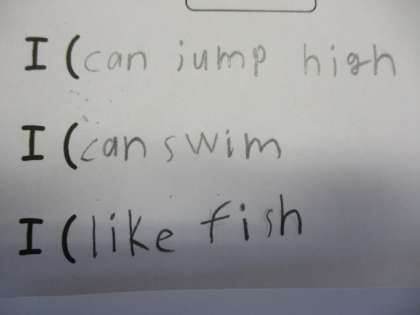 I (can jump high
I (can swim
I (like fish